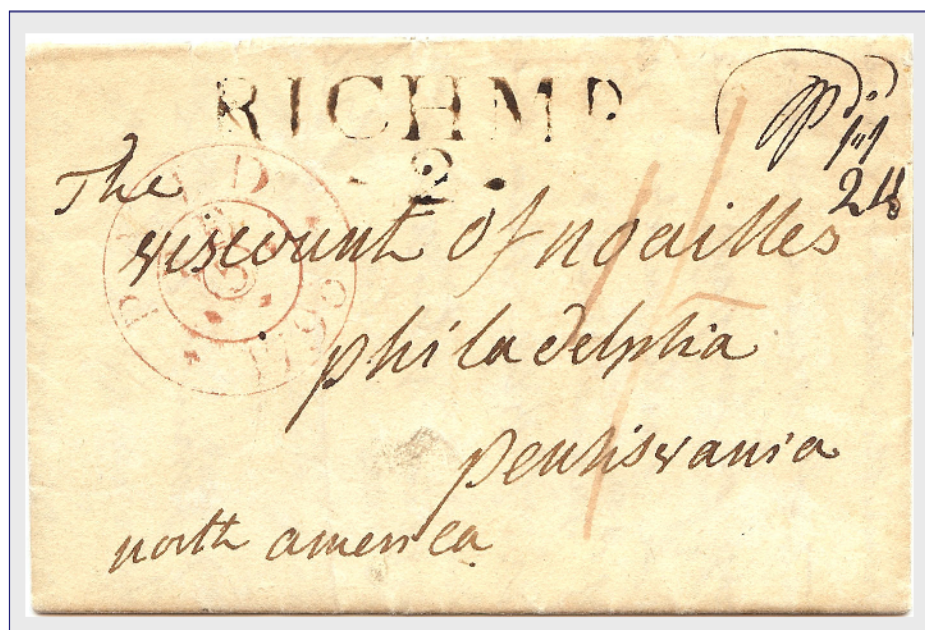 RICHMD.
2
Pd.
1"1
The
PAID
1790
viscount of noailles
philadelphia
pensisvania
north america